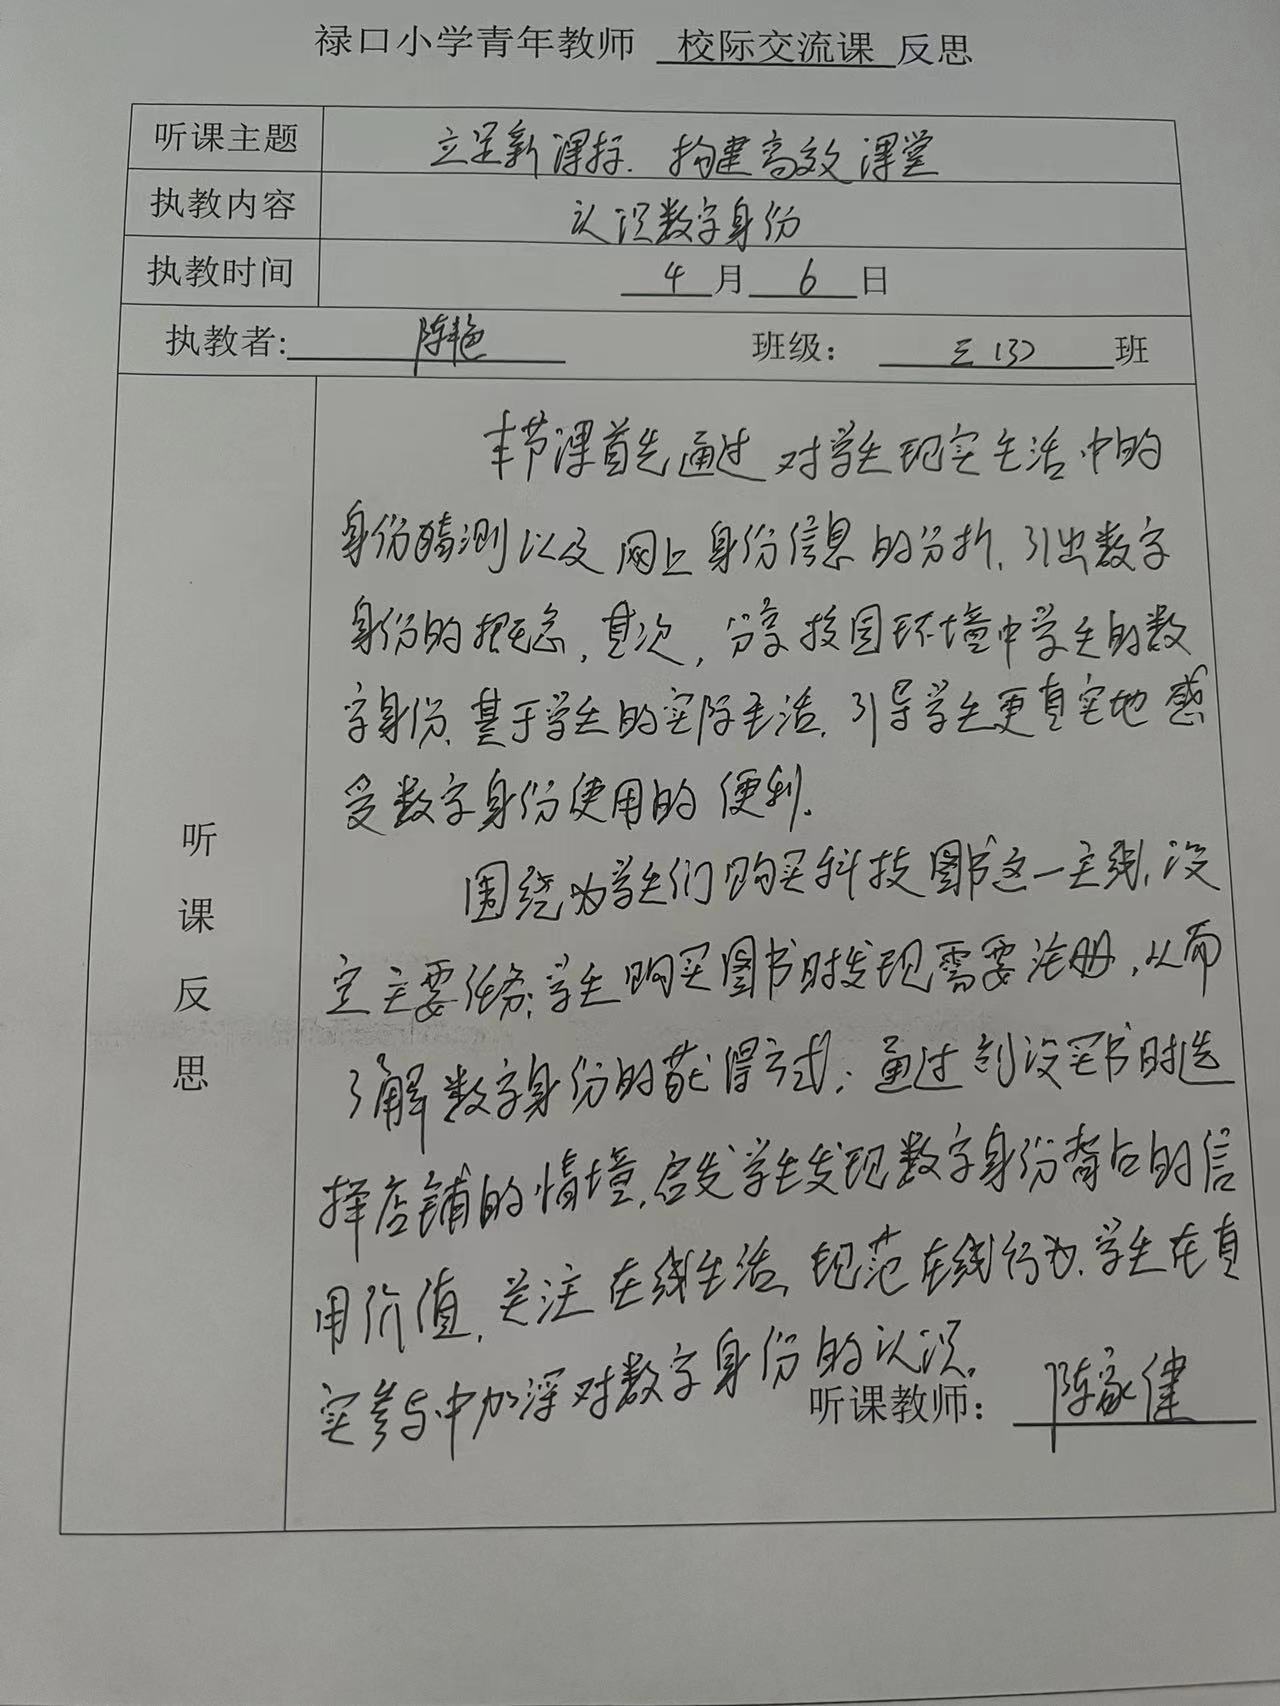 禄口小学青年教师 校际交流课 反思
听课主题 立足新课标.构建高效课堂
执教内容 认识数字身份
执教时间 4月6日
执教者: 陈艳 班级: 三(3)班
听课反思
本节课首先通过对学生现实生活中的
身份猜测以及网上身份信息的分析,引出数字
身份的概念,其次,分享校园环境中学生的数
字身份,基于学生的实际生活,引导学生更真实地感
受数字身份使用的便利.
围绕为学生们购买科技图书这一主线,设
定主要任务;学生购买图书时发现需要注册,从而
了解数字身份的获得方式;通过创设买书时选
择店铺的情境,启发学生发现数字身份背后的信
用价值,关注在线生活,规范在线行为,学生在真
实参与中加深对数字身份的认识.
听课教师: 陈家健